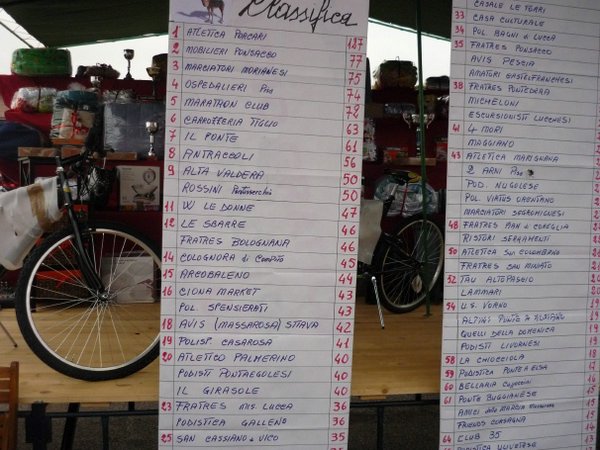 Classifica
1 ATLETICA PORCARI 127
2 MOBILIERI PONSACCO 77
3 MARCIATORI MORIANESI 75
4 OSPEDALIERI Pisa 74
5 MARATHON CLUB 72
6 CARROZZERIA TIGLIO 63
7 IL PONTE 61
8 ANTRACCOLI 56
9 ALTA VALDERA 50
ROSSINI Pontasserchio 50
11 W LE DONNE 47
12 LE SBARRE 46
FRATRES BOLOGNANA 46
14 COLOGNORA di COMPITO 45
15 ARCOBALENO 44
16 CIONA MARKET 43
POL. SPENSIERATI 43
18 AVIS (MASSAROSA) STIAVA 42
19 POLISP. CASAROSA 41
20 ATLETICO PALMERINO 40
PODISTI PONTAEGOLESI 40
IL GIRASOLE 40
23 FRATRES MIS. LUCCA 36
PODISTICA GALLENO 36
25 SAN CASSIANO a VICO 35
CASALE LE TORRI
33 CASA CULTURALE
34 POL. BAGNI di LUCCA
35 FRATRES PONSACCO
AVIS PESCIA
AMATORI CASTELFRANCHESI
38 FRATRES PONTEDERA
MICHELONI
ESCURSIONISTI LUCCHESI
41 4 MORI
MAGGIANO
43 ATLETICA MARIGNANA
2 ARNI Pisa
POD. NUGOLESE
POL VIRTUS ORENTANO
MARCIATORI SEGROMIGNESI
48 FRATRES PIAN di COREGLIA
RISTORI SERRAMENTI
50 ATLETICA SAN COLOMBANO
FRATRES SAN MINIATO
52 TAU ALTOPASCIO
LAMMARI
54 U.S. VORNO
ALPINI PONTE a MORIANO
QUELLI DELLA DOMENICA
PODISTI LIVORNESI
58 LA CHIOCCIOLA
59 PODISTICA PONTE A ELSA
60 BELLARIA Cappuccini
61 PONTE BUGGIANESE
AMICI della MARCIA
FRIENDS CORSAGNA
64 CLUB 35
PODISTICA ULIVETESE